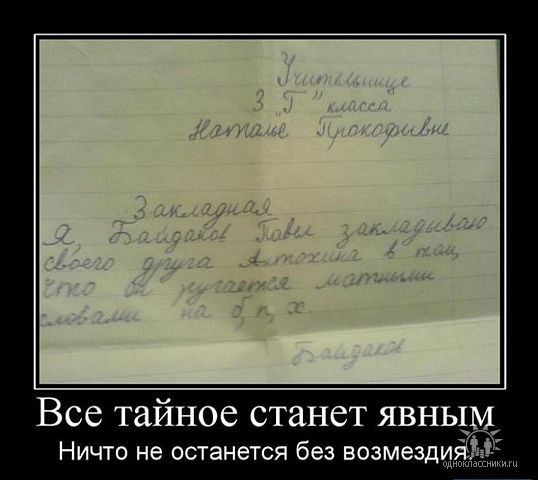 Учительнице
3 "Г" класса
Наталье Прокофивне
Закладная
Я, Байдаков Павел закладываю
своего друга Антохина в том,
что он ругается матными
словами на б, п, х.
Байдаков
Все тайное станет явным
Ничто не останется без возмездия.
одноклассники.ru